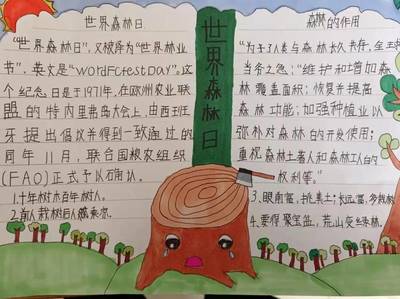 世界森林日
"世界森林日",又被译为"世界林业
节",英文是"WORFCtestDAY".这
个纪念日是于1971年,在欧洲农业联
盟的特内里弗岛大会上,由西班
牙提出倡议并得到一致通过的
同年11月,联合国粮农组织
(FAO)正式予以确认.
1.十年树木百年树人.
2.前人栽树后人
世界森林日
森林的作用
"为了人类与森林长久共存,
当务之急:"维护和增加森
林覆盖面积;恢复并提高
森林功能;加强种植业以
弥补对森林的开发使用;
重视森林土著人和森林工人的
权利等."
3.眼前富,挑
4.要得聚宝盆,荒山变绿林.